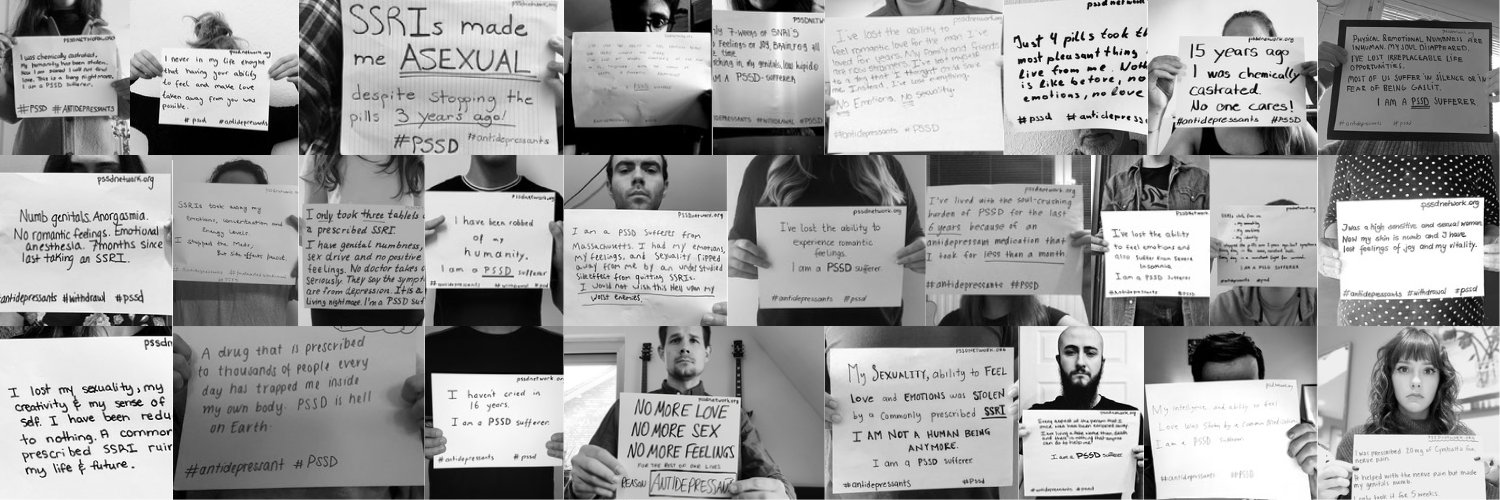 PSSDNETWORK.ORG
I was chemically castrated,
my humanity has been stolen.
Now I am scared I will not find
love. This is a living nightmare.
I am a PSSD sufferer.
#PSSD #ANTIDEPRESSANTS
pssdnetwork.org
I never in my life thought
that having your ability
to feel and make love
taken away from you was
possible.
#pssd #antidepressants
pssdnetwork.org
SSRIs made
me ASEXUAL
despite stopping the
pills 3 years ago!
#PSSD #antidepressants
PSSDNETW
ly 7-weeks of SNRI'S
feelings or JOY, BRAINFOG all
time
in my genitals, low libido
M A PSSD-sufferer
DEPRESSANTS #WITHDRAWAL #PSSD
pssdnetwork.org
I've lost the ability to
feel romantic love for the man I've
Instead, I lost everything.
No Emotions. No sexuality.
#antidepressants #PSSD
pssdnetwork.org
Just 4 pills took th
most pleasant thing
live from me. Noth
is like before, no
emotions, no love
#pssd #antidepress
pssdnetwork.org
15 years ago
I was chemically
castrated.
No one cares!
#antidepressants #PSSD
PHYSICAL & EMOTIONAL NUMBNESS ARE
INHUMAN. MY SOUL DISAPPEARED.
I'VE LOST IRREPLACEABLE LIFE
OPPORTUNITIES.
MOST OF US SUFFER IN SILENCE OR IN
FEAR OF BEING GASLIT.
I AM A PSSD SUFFERER
#antidepressants #pssd
pssdnetwork.org
Numb genitals. Anorgasmia.
No romantic feelings. Emotional
anesthesia. 7 months since
last taking an SSRI.
antidepressants #withdrawal #pssd
pssdnetwork.org
SSRIs took away my
emotions, concentration and
Energy Levels.
I stopped the Meds,
But Side effects persist.
pssdnetwork.org
I only took three tablets o
a prescribed SSRI.
I have genital numbness,
sex drive and no positive
feelings. No doctor takes
seriously. They say the sympt
are from depression. It is a
living nightmare. I'm a PSSD suf
pssdnetwork.org
I have been robbed
of my
humanity.
I am a PSSD sufferer
#antidepressants #withdrawal #pssd
PSSDnetwork.org
I am a PSSD sufferer from
Massachusetts. I had my emotions,
my feelings, and sexuality ripped
away from me by an understudied
side effect from quitting SSRIs.
I would not wish this Hell upon my
worst enemies.
pssdnetwork.org
I've lost the ability to
experience romantic
feelings.
I am a PSSD sufferer.
#antidepressants #pssd
pssdnetwork.org
I've lived with the soul-crushing
burden of PSSD for the last
6 years because of an
antidepressant medication that
I took for less than a month.
#antidepressants #PSSD
pssdnetwork.org
I've lost the ability
to feel emotions and
also Suffer from Severe
Insomnia.
I am a PSSD Sufferer
#antidepressants #PSSD
pssdnetwork.org
I am a PSSD sufferer
pssdnetwork.org
I was a high sensitive and sexual woman.
Now my skin is numb and I have
lost feelings of joy and my vitality.
#antidepressants #withdrawal #pssd
pssdn
I lost my sexuality, my
creativity & my sense of
self. I have been redu
to nothing. A common
prescribed SSRI ruin
my life & future.
A drug that is prescribed
to thousands of people every
day has trapped me inside
my own body. PSSD is hell
on Earth.
#antidepressant #PSSD
pssdnetwork.org
I haven't cried in
16 years.
I am a PSSD sufferer.
#antidepressants #pssd
pssdnetwork.org
NO MORE LOVE
NO MORE SEX
NO MORE FEELINGS
FOR THE REST OF OUR LIVES
REASON: ANTIDEPRESSANTS
PSSDNETWORK.ORG
My SEXUALITY, ability to FEEL
LOVE and EMOTIONS was STOLEN
by a Commonly prescribed SSRI
I AM NOT A HUMAN BEING
ANYMORE.
I am a PSSD sufferer.
#antidepressants #Pssd
pssdnetwork.org
I am a PSSD sufferer.
#antidepressants #withdrawal #pssd
pssdnetwork.org
My intelligence, and ability to feel
Love was Stolen by a Common Medication
I am a PSSD Sufferer
#antidepressants #PSSD
PSSDnetwork.org
I was prescribed 20mg of Cymbalta for
nerve pain.
It helped with the nerve pain but made
my genitals numb.
I only took it for 5 weeks.